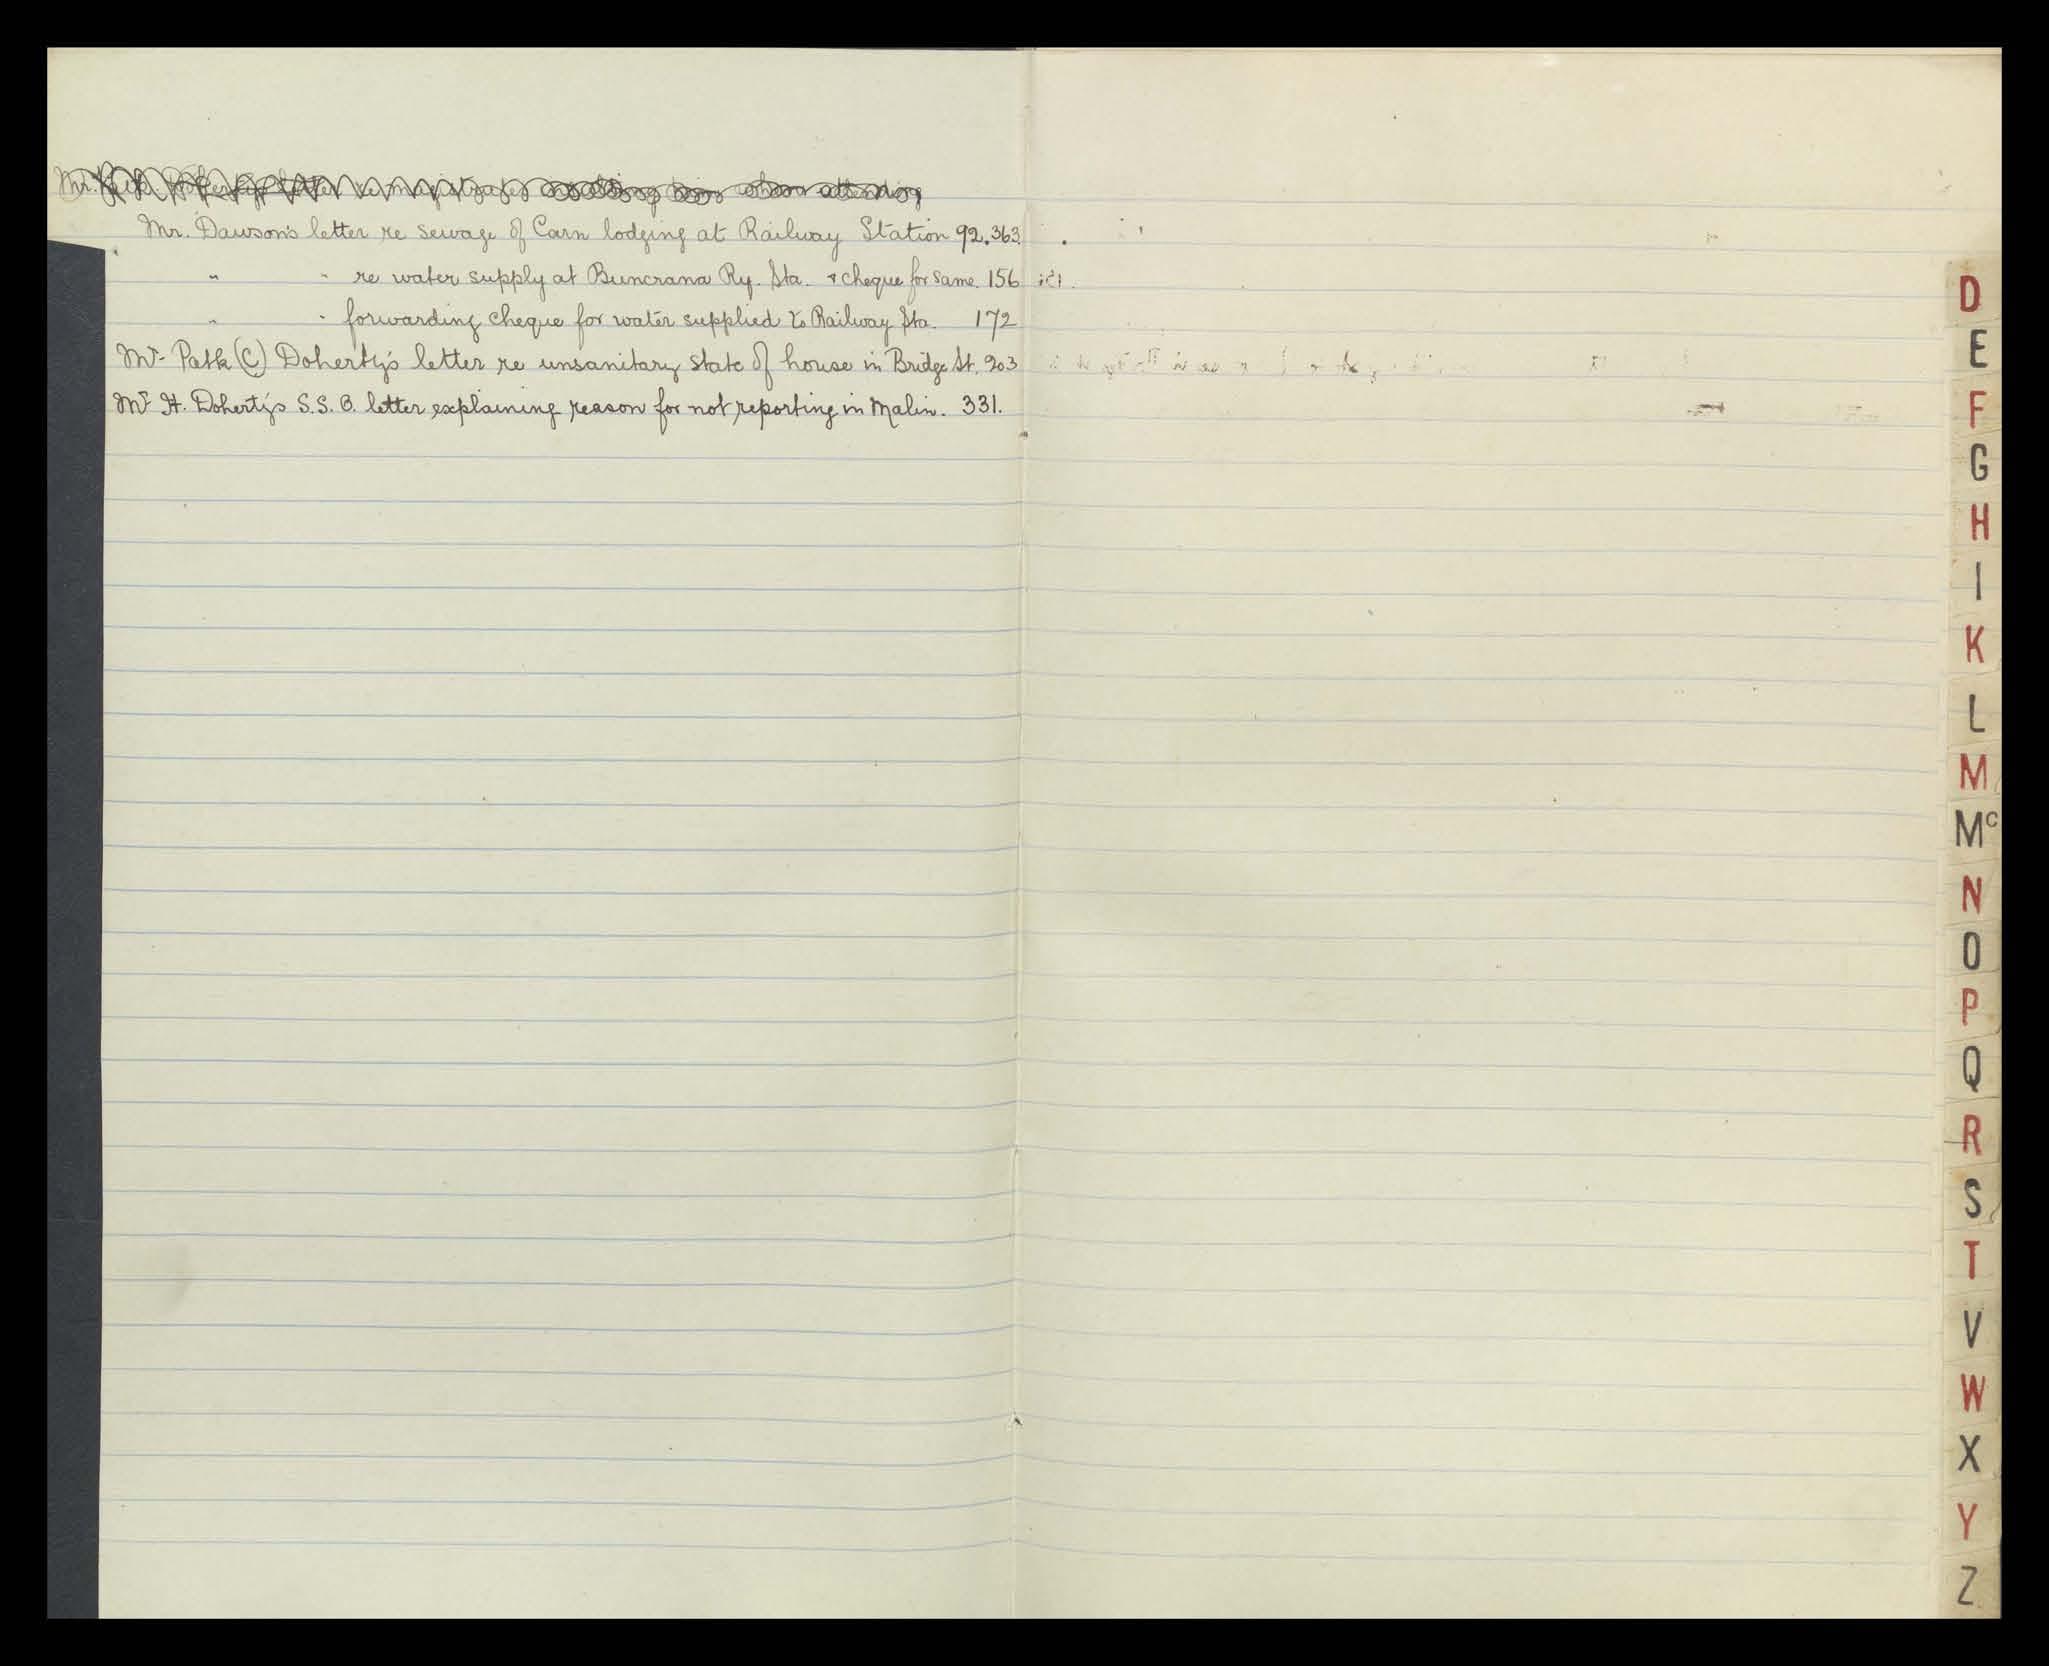 Mr. Patk Doherty's letter re magistrates when attending
Mr. Dawson's letter re sewage of Carn lodging at Railway Station 92. 363.
" " re water supply at Buncrana Ry. Sta. & cheque for same. 156
" " forwarding cheque for water supplied to Railway Sta. 172
Mr. Patk (C) Doherty's letter re unsanitary state of house in Bridge St. 203
Mr. H. Doherty's S.S.O. letter explaining reason for not reporting in Malin. 331.
D
E
F
G
H
I
K
L
M
Mc
N
O
P
Q
R
S
T
V
W
X
Y
Z